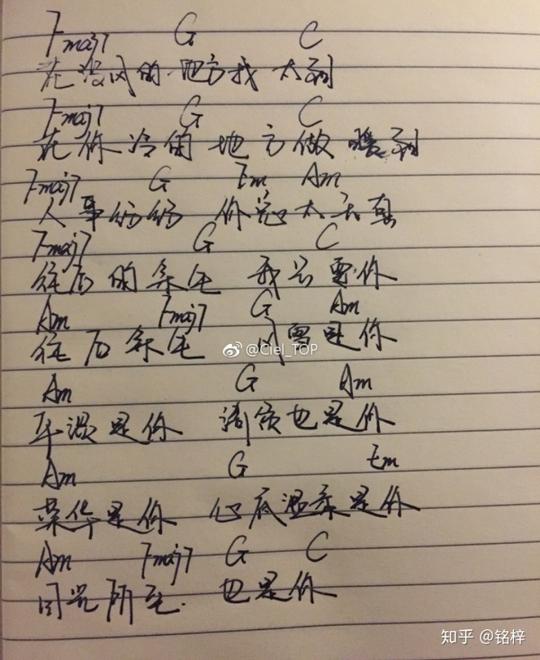 Fmaj7 G C
在没风的地方找太阳
Fmaj7 G C
在你冷的地方做暖阳
Fmaj7 G Em Am
人事纷纷 你总太天真
Fmaj7 G C
往后的余生 我只要你
Am Fmaj7 G Am
往后余生 风雪是你
@Ciel_TOP
Am G Am
平淡是你 清贫也是你
Am G Em
荣华是你 心底温柔是你
Am Fmaj7 G C
目光所至 也是你
知乎 @铭梓